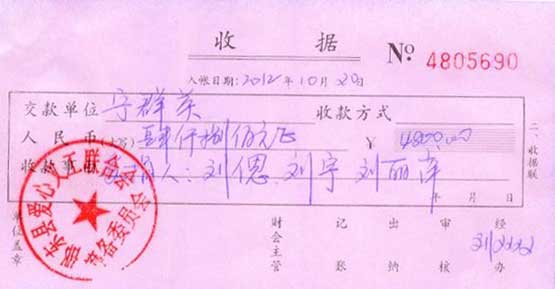 收 据
№ 4805690
入帐日期：2012年10月20日
交款单位 宁群英 收款方式
人民币（大写） 肆仟捌佰元正 ￥ 4800.00
收款事由 人：刘偲、刘宇 刘丽萍
年 月 日
二、收据联
邵东县爱心人士联合会
筹备委员会
单位盖章 财会主管 记账 出纳 审核 经办